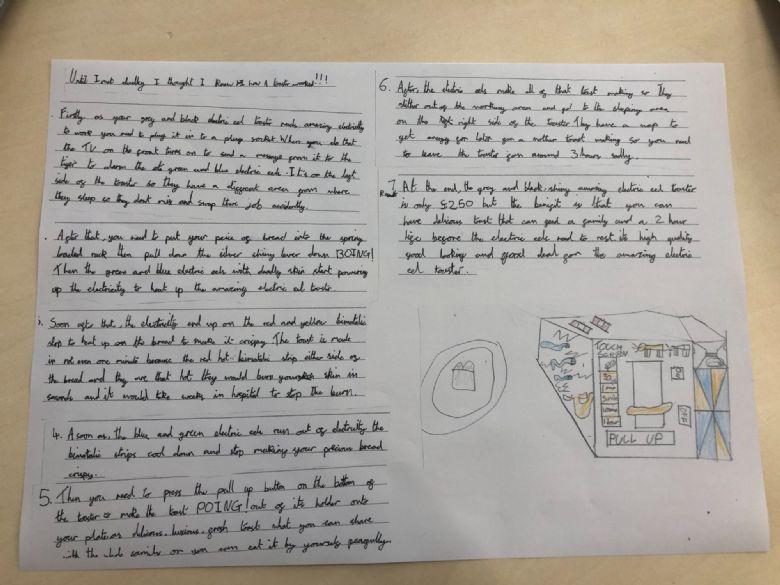 Until I met dually I thought I knew how a toaster worked!!!
. Firstly as your grey and black electric eel toaster needs amazing electricity
to work you need to plug it in to a plug socket. When you do that
the TV on the front turns on to send a message from it to the
tiger to alarm the green and blue electric eels. It's on the left
side of the toaster so they have a different area from where
they sleep so they don't mix and swap there job accidently.
. After that, you need to put your peice of bread into the spring
loaded rack then pull down the silver shiny lever down BOING!
Then the green and blue electric eels with deadly skin start powering
up the electricity to heat up the amazing electric eel toaster.
3. Soon after that, the electricity end up on the red and yellow bimetalic
strip to heat up on the bread to make it crispy. The toast is made
in not even one minute because the red hot bimetalic strip either side of
the bread and they are that hot they would burn your skin in
seconds and it would take weeks in hospital to stop the burn.
4. As soon as, the blue and green electric eels run out of electricity the
bimetalic strips cool down and stop making your precious bread
crispy.
5. Then you need to press the pull up button on the bottom of
the toaster to make the toast POING! out of its holder onto
your plate as delicious, luxious, fresh toast what you can share
with the whole family or you can eat it by yourself peacefully.
6. After, the electric eels make all of that toast making so they
slither out of the working area and go to the sleeping area
on the right side of the toaster. They have a nap to
get energy for later for a nother toast making so you need
to leave the toaster for around 3 hours sadly.
7. At the end, the grey and black, shiny amazing electric eel toaster
is only £250 but the benifit is that you can
have delicious toast that can feed a family and a 2 hour
life before the electric eels need to rest. its high quality
good looking and good deal for the amazing electric
eel toaster.
TOUCH
SCREEN
30
1 hour
PULL UP